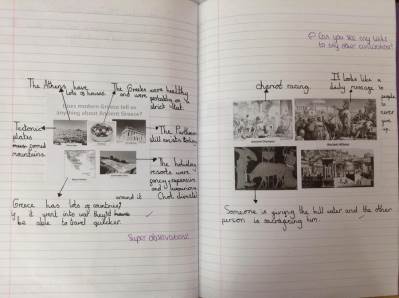 The Athens have
lots of houses.
The Greeks were healthy
and were probably on a
strict diet.
Does modern Greece tell us
anything about Ancient Greece?
Tectonic
plates
formed
mountains.
The Parthenon
still exists today.
The holiday
resorts were
fancy, expensive
and luxurious
(hot climate)
Greece has lots of countries around it
if it went into war they'd
be able to travel quicker.
Super observations!
Can you see any links
to any other civilisations?
chariot racing.
It looks like a
daily message to
people
to
never
give
up.
Ancient Olympics
Ancient Athens
Someone is giving the bull water and the other
person is sacrificing him.